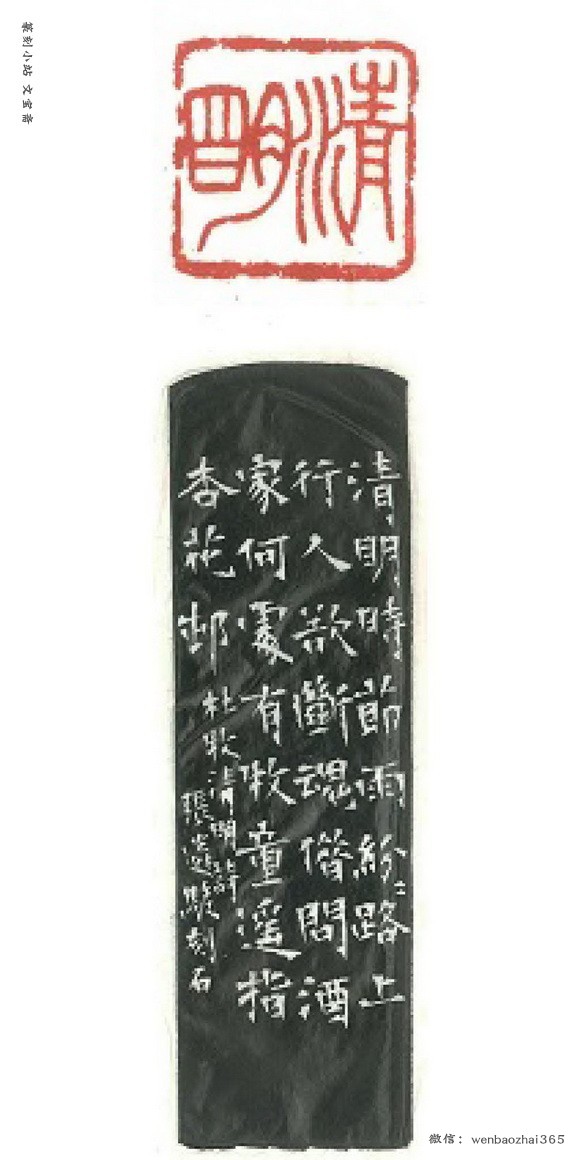 篆刻小站 文宝斋
清明
清明時節雨紛〻路上
行人欲斷魂借問酒
家何處有牧童遥指
杏花邨
杜牧清明詩
張遴駿刻石
微信：wenbaozhai365